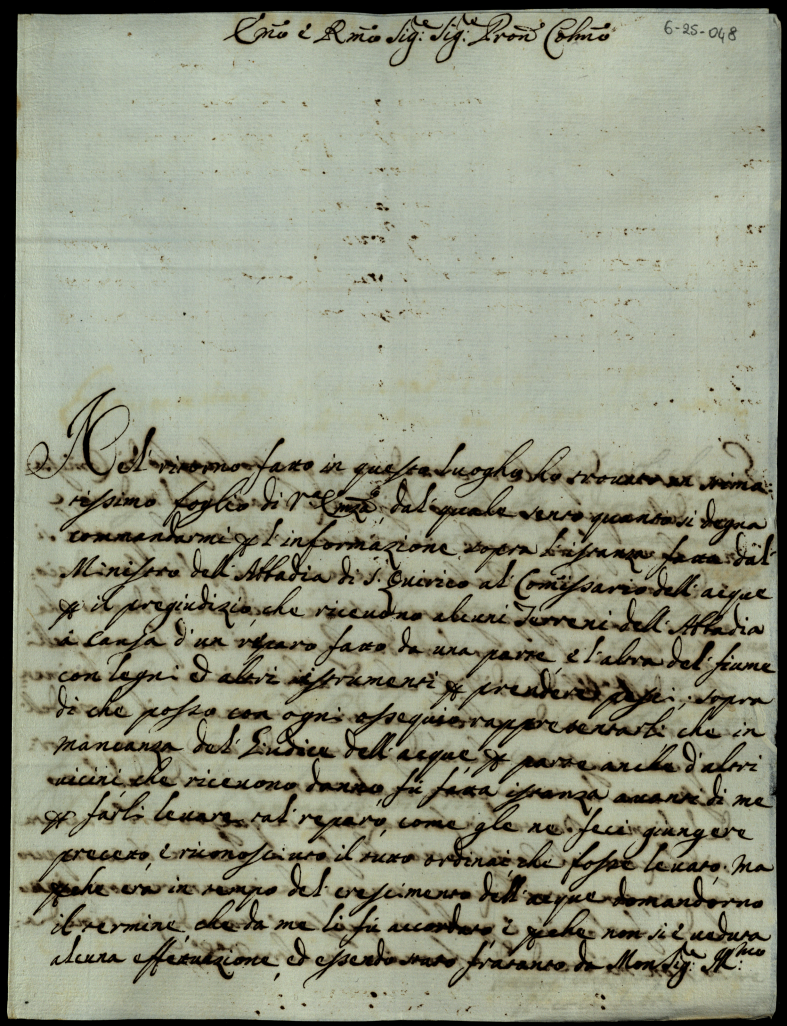 Emo e Rmo Sig.re Sig.re Pron Colmo
6-25-048
Nel ritorno fatto in questo luogho ho trovato un stima-
tissimo foglio di V.a Emza, dal quale sento quanto si degna
commandarmi p l'informazione sopra l'istanza fatta dal
Ministro dell'Abbadia di S. Quirico al Comissario dell'acque
p il pregiudizio, che ricevono alcuni Terreni dell'Abbadia
à causa d'un riparo fatto da una parte, e l'altra del fiume
con legni ed altri istrumenti p prendere pesci; sopra
di che posso con ogni ossequio rappresentarli che in
mancanza del Giudice dell'acque, p parte anche d'altri
vicini, che ricevono danno fù fatta istanza avanti di me
p farli levare tal reparo, come gle ne feci giungere
preceto, e riconosciuto il tutto ordinai, che fosse levato, ma
pche era in tempo del crescimento dell'acque domandorno
il termine, che da me li fù accordato e pche non si è veduta
alcuna effettuazione, ed essendo stato fratanto da Monsig.re Ill.mo